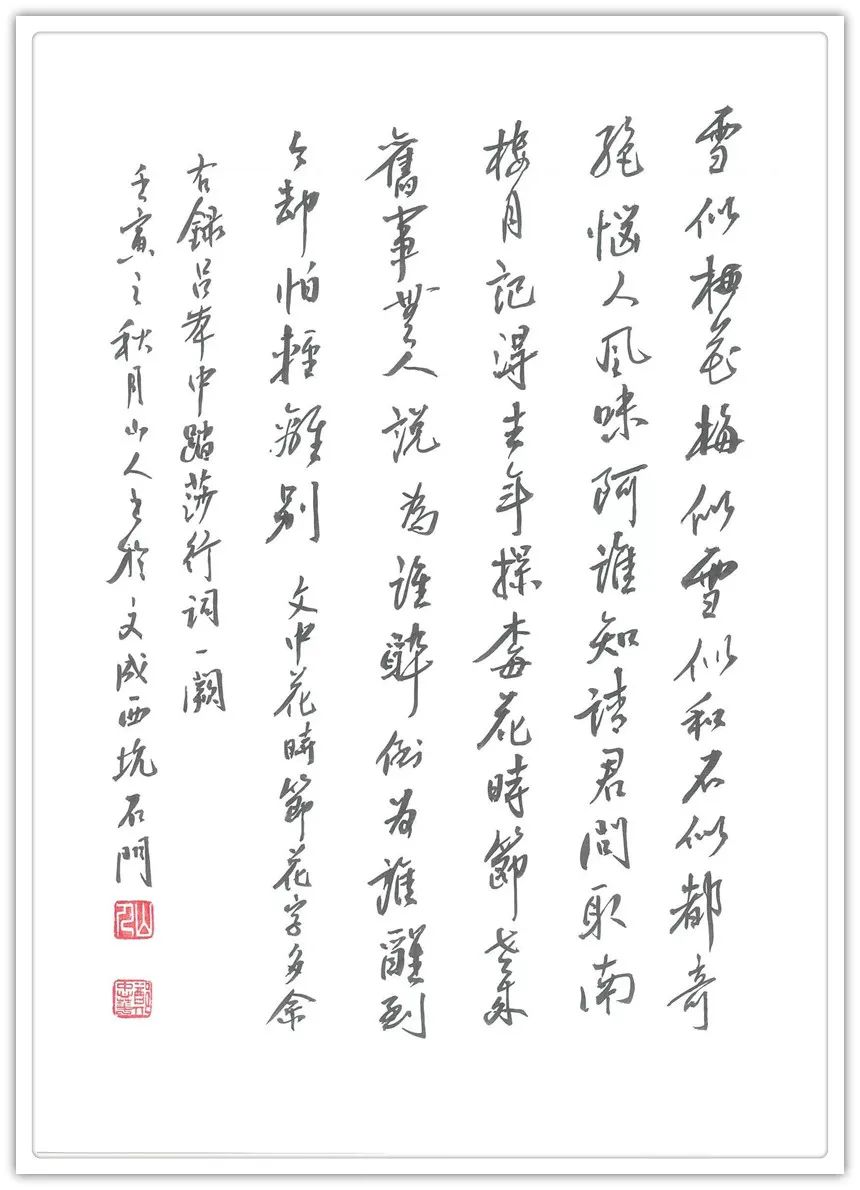 雪似梅花梅似雪似和不似都奇
絕惱人風味阿誰知請君問取南
樓月記得去年探梅花時節老來
舊事無人說為誰醉倒為誰醒到
今卻怕輕離別 文中花時節花字多余
右錄呂本中踏莎行詞一闋
壬寅之秋月山人書於文成西坑石門
山人